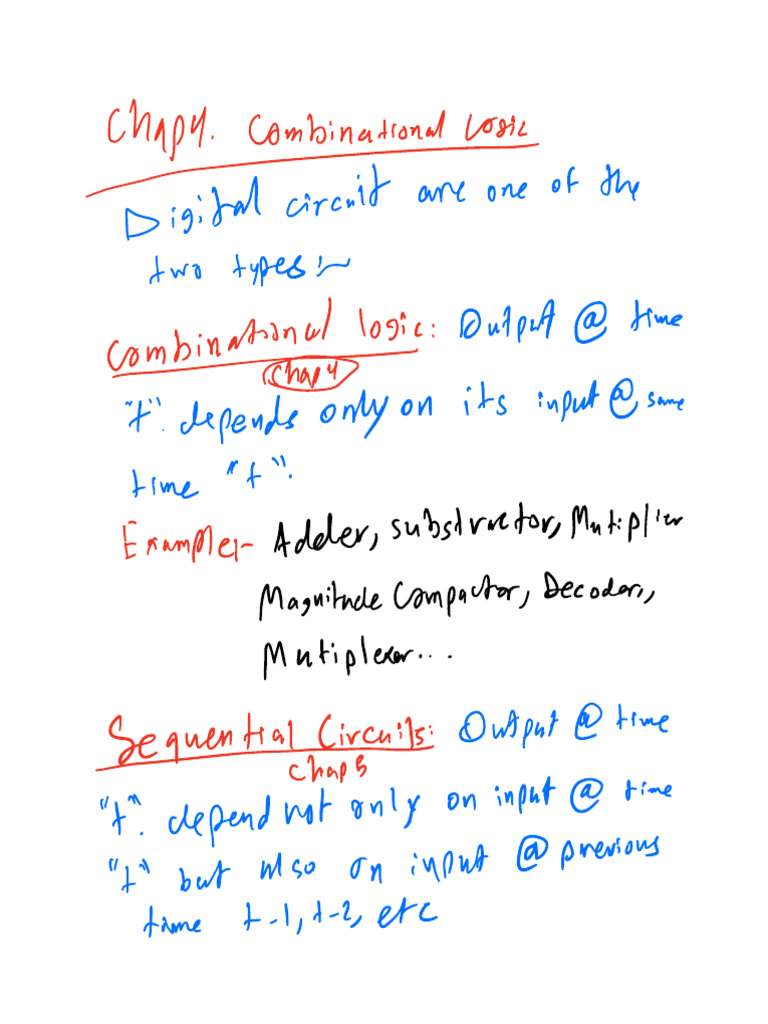 Chap4. Combinational Logic
Digital circuit are one of the
two types:~
Combinational logic: Output @ time
Chap 4
"t". depends only on its input @ same
time "t".
Example:- Adder, substructor, Mutiplier
Magnitude Compactor, Decoder,,
Mutiplexer...
Sequential Circuits: Output @ time
Chap 5
"t". depend not only on input @ time
"t" but also on input @ previous
time t-1, t-2, etc